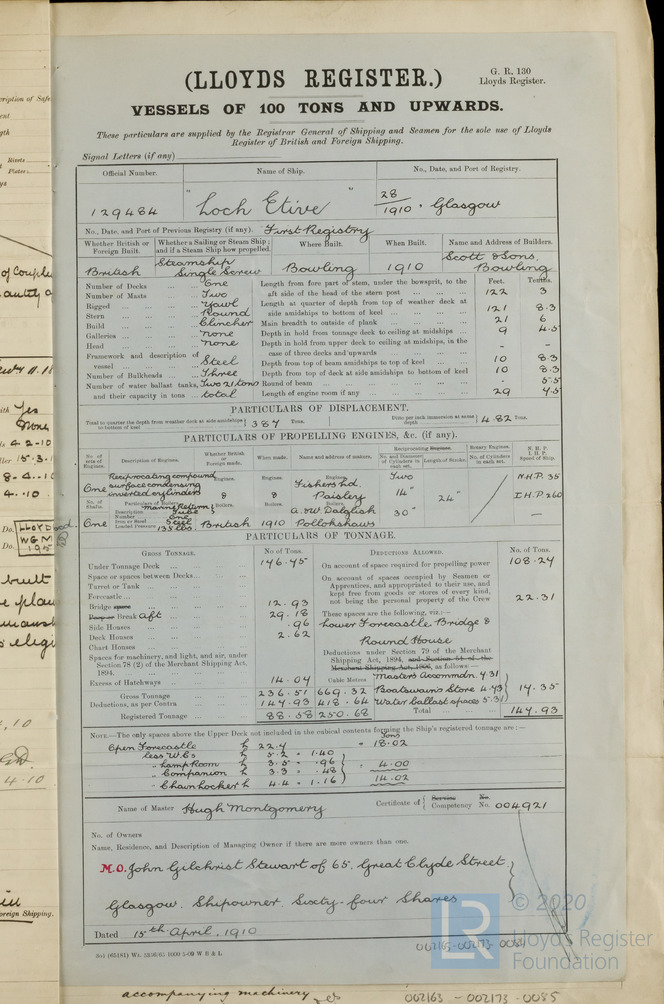 G. R. 130
Lloyds Register.
(LLOYDS REGISTER.)
VESSELS OF 100 TONS AND UPWARDS.
These particulars are supplied by the Registrar General of Shipping and Seamen for the sole use of Lloyds
Register of British and Foreign Shipping.
Signal Letters (if any)
Official Number. Name of Ship. No., Date, and Port of Registry.
129484 "Loch Etive" 28/1910. Glasgow
No., Date, and Port of Previous Registry (if any). First Registry
Whether British or Foreign Built. Whether a Sailing or Steam Ship; and if a Steam Ship how propelled. Where Built. When Built. Name and Address of Builders.
British Steamship Single Screw Bowling 1910 Scott & Sons, Bowling
Number of Decks ... One
Number of Masts ... Two
Rigged ... Yawl
Stern ... Round
Build ... Clincher
Galleries ... None
Head ... None
Framework and description of vessel ... Steel
Number of Bulkheads ... Three
Number of water ballast tanks, and their capacity in tons ... Two 21 tons total
Feet. Tenths.
Length from fore part of stem, under the bowsprit, to the aft side of the head of the stern post 122 3
Length at quarter of depth from top of weather deck at side amidships to bottom of keel 121 8.3
Main breadth to outside of plank 21 6
Depth in hold from tonnage deck to ceiling at midships 9 4.5
Depth in hold from upper deck to ceiling at midships, in the case of three decks and upwards - -
Depth from top of beam amidships to top of keel 10 8.3
Depth from top of deck at side amidships to bottom of keel 10 8.3
Round of beam - 5.5
Length of engine room if any 29 4.5
PARTICULARS OF DISPLACEMENT.
Total to quarter the depth from weather deck at side amidships to bottom of keel 387 Tons. Ditto per inch immersion at same depth 4.82 Tons.
PARTICULARS OF PROPELLING ENGINES, &c. (if any).
No. of sets of Engines. Description of Engines. Whether British or Foreign made. When made. Name and address of makers. Reciprocating Engines. No. and Diameter of Cylinders in each set. Length of Stroke. Rotary Engines. No. of Cylinders in each set. N.H.P. I.H.P. Speed of Ship.
One Reciprocating compound surface condensing inverted cylinders Engines. Engines. Engines. Fishers Ld. Paisley Two 14" 30" 24" N.H.P. 35 I.H.P. 260 —
No. of Shafts. Particulars of Boilers. Boilers. Boilers. Boilers.
One Description Marine Return Tube Number One Iron or Steel Steel Loaded Pressure 135 lbs British 1910 A. & W Dalglish Pollokshaws
PARTICULARS OF TONNAGE.
GROSS TONNAGE. No of Tons.
Under Tonnage Deck 146.45
Space or spaces between Decks
Turret or Tank
Forecastle
Bridge space 12.93
Poop or Break Aft 29.18
Side Houses .96
Deck Houses 2.62
Chart Houses
Spaces for machinery, and light, and air, under Section 78 (2) of the Merchant Shipping Act, 1894.
Excess of Hatchways 14.04
Cubic Metres
Gross Tonnage 236.51 669.32
Deductions, as per Contra 147.93 418.64
Registered Tonnage 88.58 250.68
DEDUCTIONS ALLOWED. No. of Tons.
On account of space required for propelling power 108.24
On account of spaces occupied by Seamen or Apprentices, and appropriated to their use, and kept free from goods or stores of every kind, not being the personal property of the Crew 22.31
These spaces are the following, viz.:—
Lower Forecastle Bridge &
Round House
Deductions under Section 79 of the Merchant Shipping Act, 1894, and Section 54 of the Merchant Shipping Act, 1906, as follows:—
Masters Accommdn. 4.31
Boatswains Store 4.73
Water ballast spaces 5.31
14.35
Total 147.93
NOTE.—The only spaces above the Upper Deck not included in the cubical contents forming the Ship's registered tonnage are:—
Tons
Open Forecastle h 22.4 = 18.02
less W.Cs h 5.2 = 1.40
" Lamp Room h 3.5 = .96
" Companion h 3.3 = .48
" Chain Locker h 4.4 = 1.16
= 4.00
14.02
Name of Master Hugh Montgomery Certificate of Service Competency No. No. 004921
No. of Owners
Name, Residence, and Description of Managing Owner if there are more owners than one.
M.O. John Gilchrist Stewart of 65, Great Clyde Street
Glasgow. Shipowner Sixty-four Shares
Dated 15th April, 1910
© 2020
LR
Lloyd's Register
Foundation
accompanying machinery
002163 - 002173 - 0085